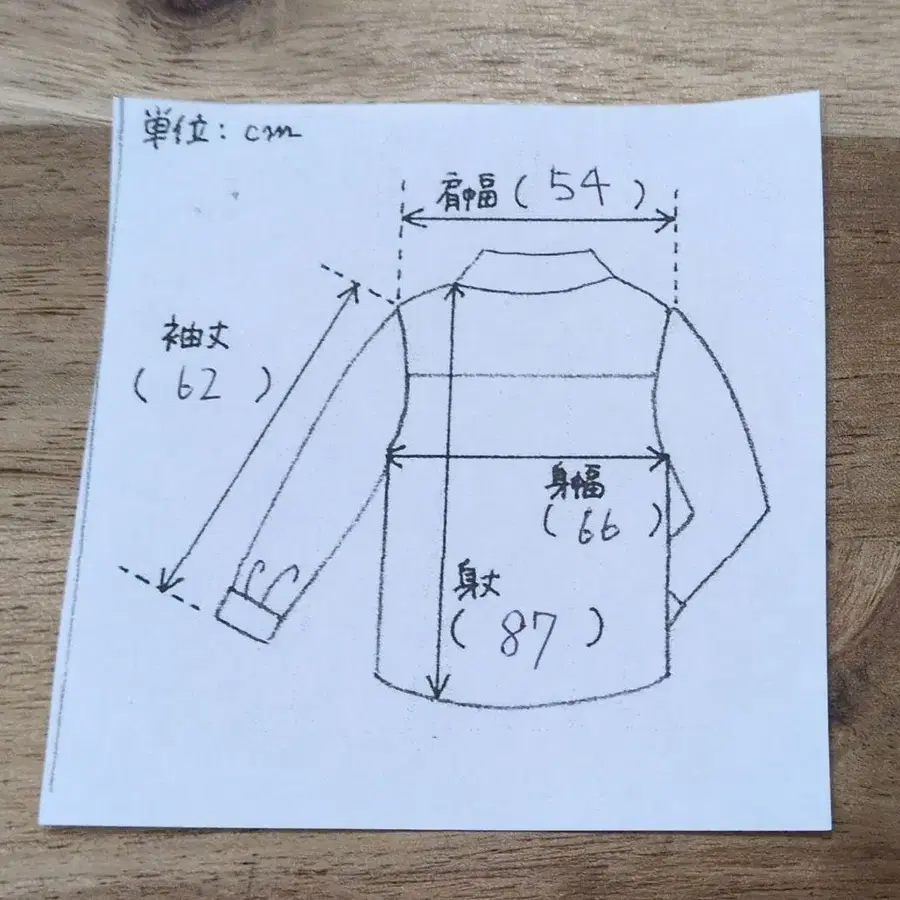 単位：cm
肩幅（54）
袖丈
（62）
身幅
（66）
身丈
（87）